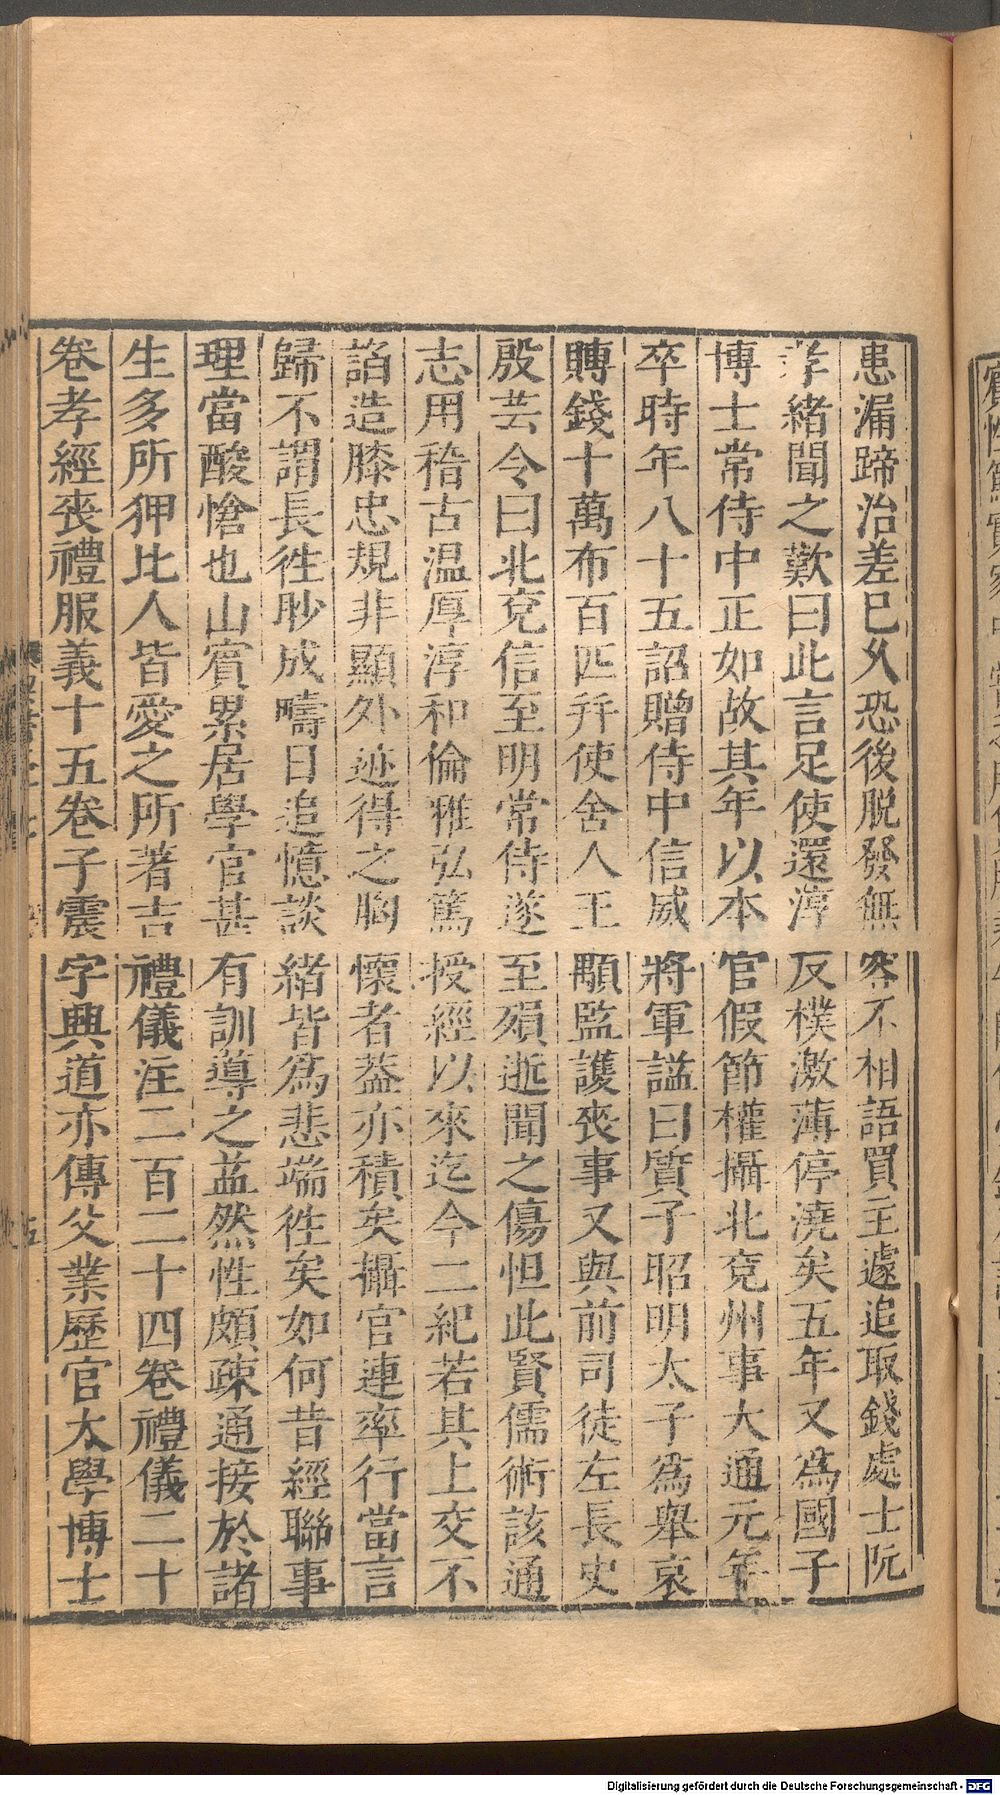 患漏蹄治差已久恐後脫發無容不相語買主遽追取錢處士阮
孝緒聞之歎曰此言足使還淳反樸激薄停澆矣五年又為國子
博士常侍中正如故其年以本官假節權攝北兗州事大通元年
卒時年八十五詔贈侍中信威將軍謚曰質子昭明太子為舉哀
賻錢十萬布百匹幷使舍人王顒監護喪事又與前司徒左長史
殷芸令曰北兗信至明常侍遂至殞逝聞之傷怛此賢儒術該通
志用稽古温厚淳和倫雅弘篤授經以來迄今二紀若其上交不
諂造膝忠規非顯外迹得之胸懷者葢亦積矣攝官連率行當言
歸不謂長徃眇成疇日追憶談緒皆為悲端徃矣如何昔經聯事
理當酸愴也山賓累居學官甚有訓導之益然性頗疎通接於諸
生多所狎比人皆愛之所著吉禮儀注二百二十四卷禮儀二十
卷孝經喪禮服義十五卷子震字興道亦傳父業歷官太學博士
Digitalisierung gefördert durch die Deutsche Forschungsgemeinschaft - DFG